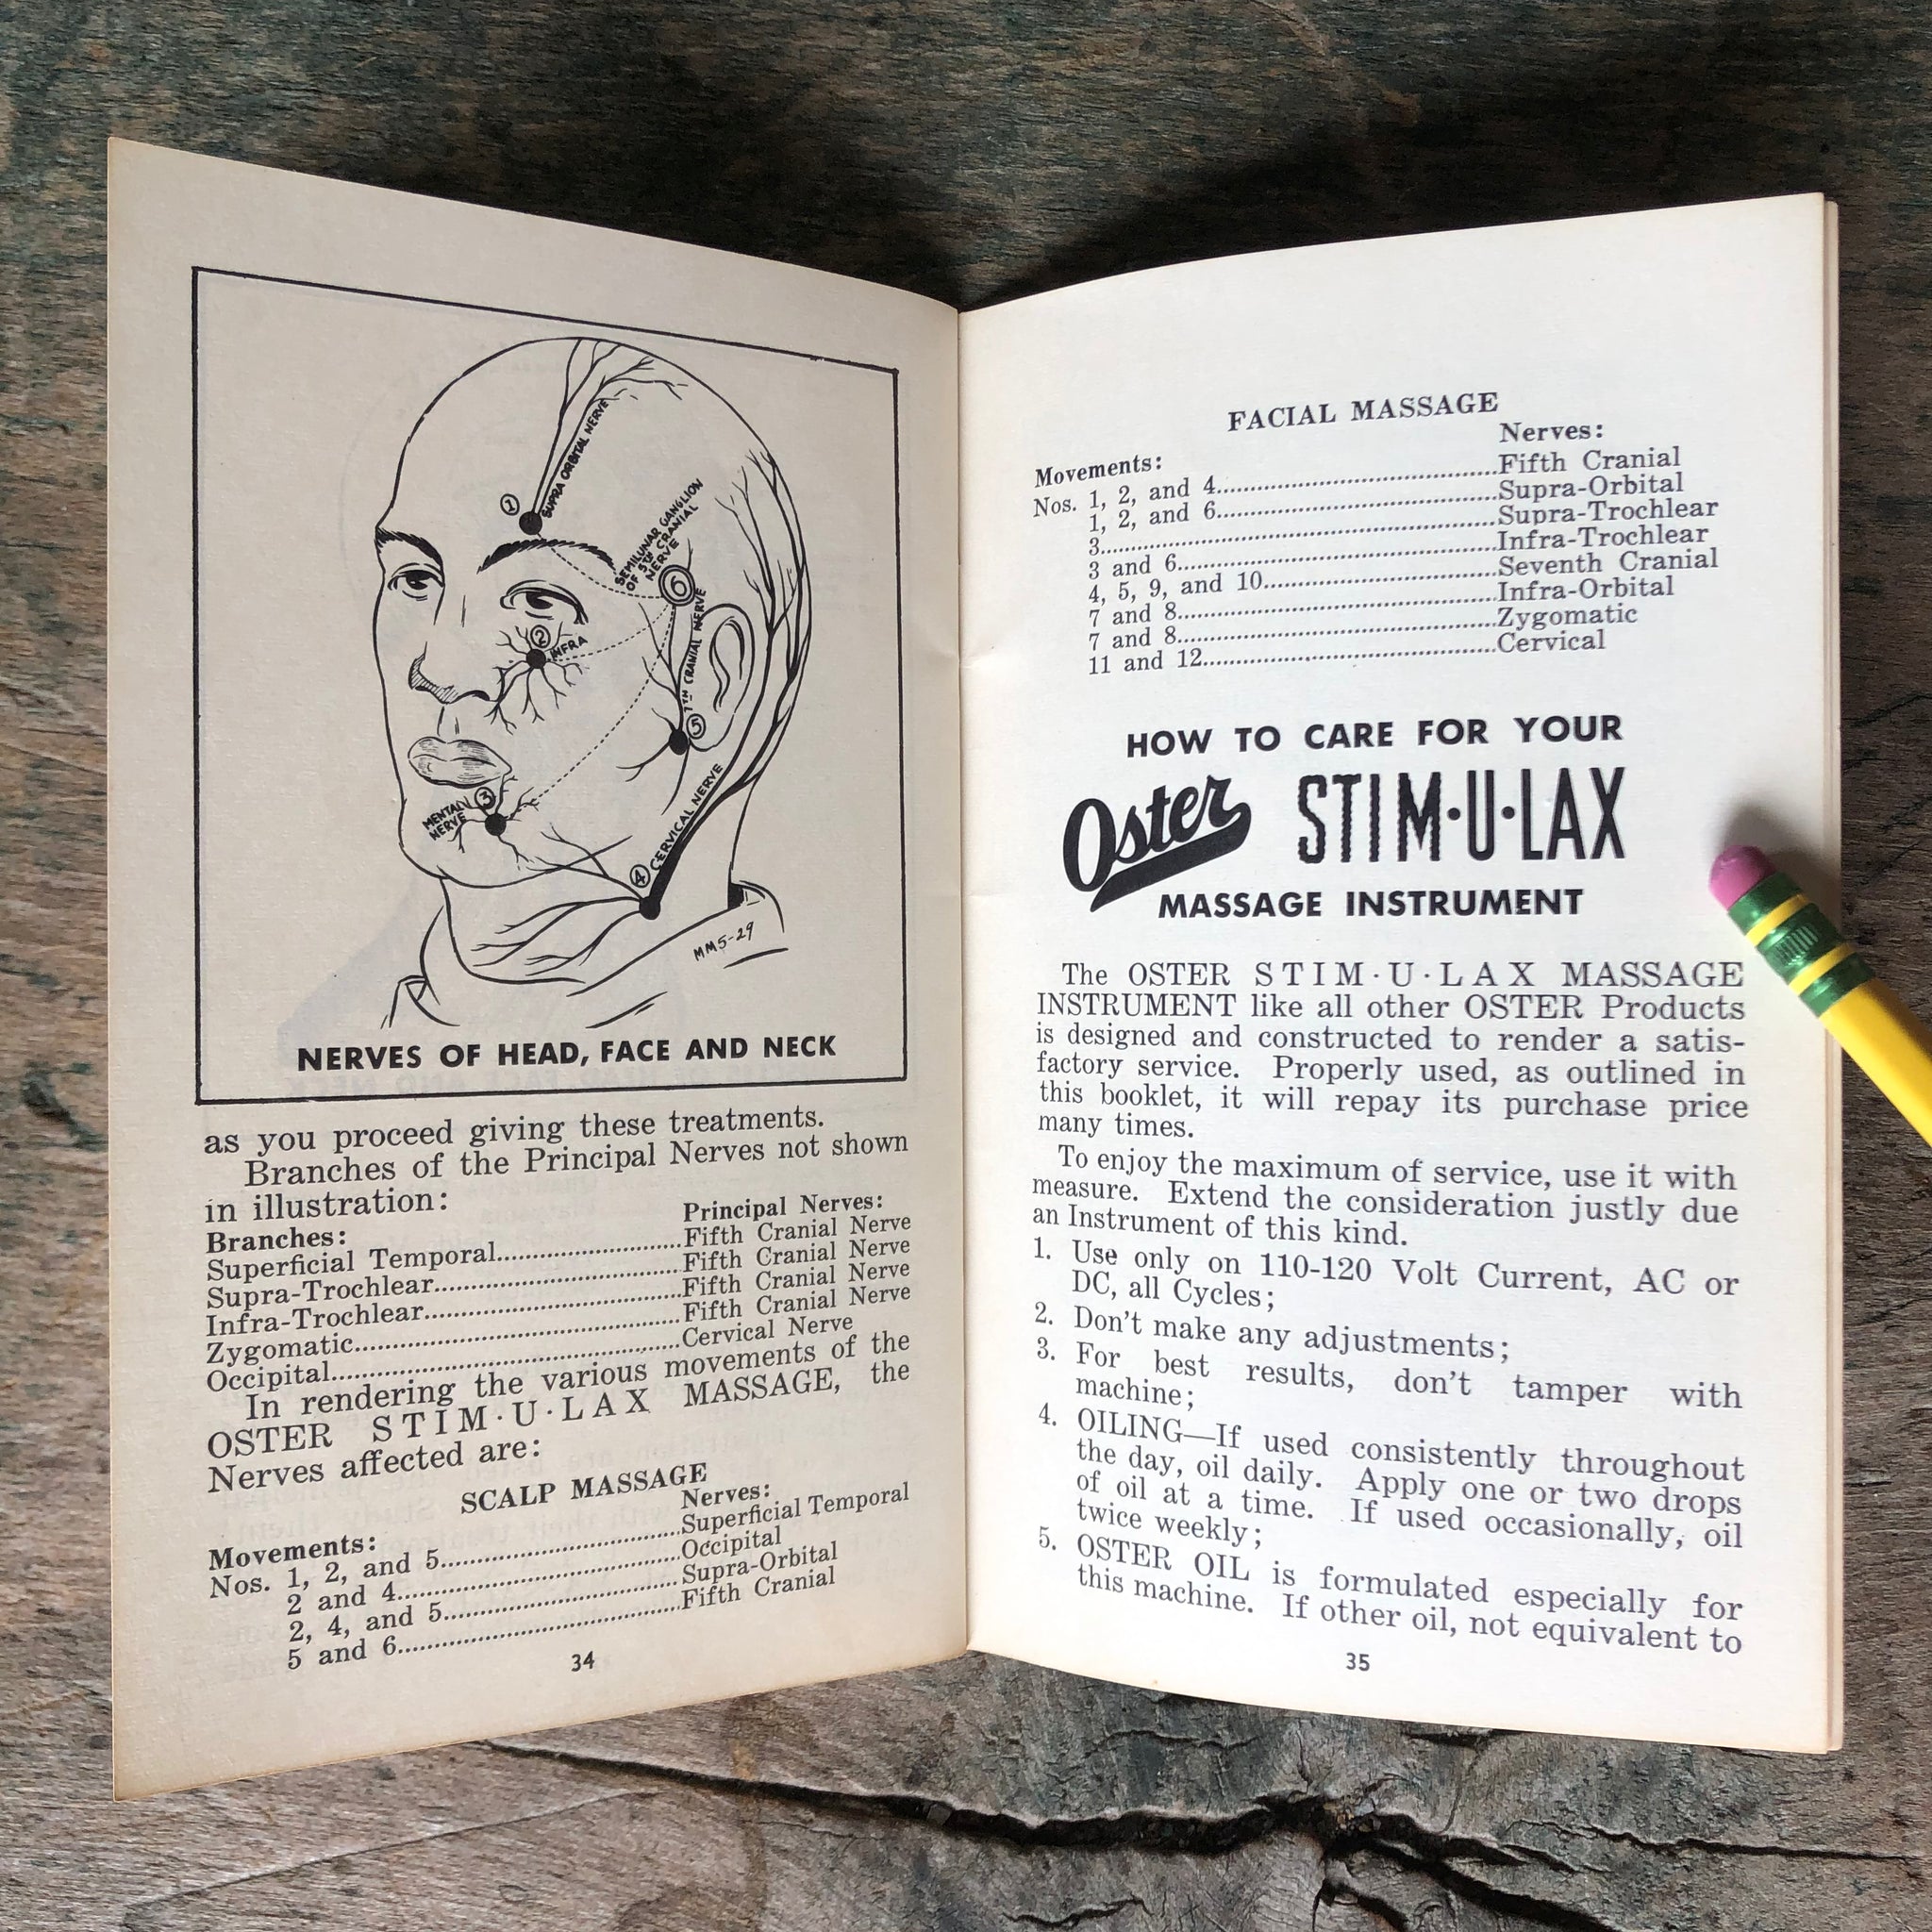 ① SUPRA ORBITAL NERVE
SEMILUNAR GANGLION
OF 5TH CRANIAL
NERVE
⑥
② INFRA
7TH CRANIAL NERVE
⑤
MENTAL
NERVE
③
④ CERVICAL NERVE
MM5-29
NERVES OF HEAD, FACE AND NECK
as you proceed giving these treatments.
Branches of the Principal Nerves not shown
in illustration:
Branches: Principal Nerves:
Superficial Temporal..........Fifth Cranial Nerve
Supra-Trochlear..........Fifth Cranial Nerve
Infra-Trochlear..........Fifth Cranial Nerve
Zygomatic..........Fifth Cranial Nerve
Occipital..........Cervical Nerve
In rendering the various movements of the
OSTER STIM·U·LAX MASSAGE, the
Nerves affected are:
SCALP MASSAGE
Movements: Nerves:
Nos. 1, 2, and 5..........Superficial Temporal
2 and 4..........Occipital
2, 4, and 5..........Supra-Orbital
5 and 6..........Fifth Cranial
34
FACIAL MASSAGE
Movements: Nerves:
Nos. 1, 2, and 4..........Fifth Cranial
1, 2, and 6..........Supra-Orbital
3..........Supra-Trochlear
3 and 6..........Infra-Trochlear
4, 5, 9, and 10..........Seventh Cranial
7 and 8..........Infra-Orbital
7 and 8..........Zygomatic
11 and 12..........Cervical
HOW TO CARE FOR YOUR
Oster STIM·U·LAX
MASSAGE INSTRUMENT
The OSTER STIM·U·LAX MASSAGE
INSTRUMENT like all other OSTER Products
is designed and constructed to render a satis-
factory service. Properly used, as outlined in
this booklet, it will repay its purchase price
many times.
To enjoy the maximum of service, use it with
measure. Extend the consideration justly due
an Instrument of this kind.
1. Use only on 110-120 Volt Current, AC or
DC, all Cycles;
2. Don't make any adjustments;
3. For best results, don't tamper with
machine;
4. OILING—If used consistently throughout
the day, oil daily. Apply one or two drops
of oil at a time. If used occasionally, oil
twice weekly;
5. OSTER OIL is formulated especially for
this machine. If other oil, not equivalent to
35